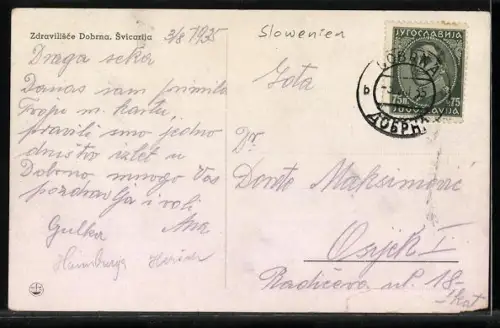 Zdravilišče Dobrna. Švicarija
3/8 1935
Slowenien
Draga seko
Danas sam primila
Tvoju m. kartu,
pravili smo jedno
društvo izlet u
Dobrno, mnogo Vas
pozdravlja i voli
Ana
Gulka
Gota
Dr.
Đorđe Maksimović
Osijek I
Radićeva ul. 18-
I kat
ЈУГОСЛАВИЈА
75
75
JUGOSLAVIJA
DOBRNA
b
ДОБРНА